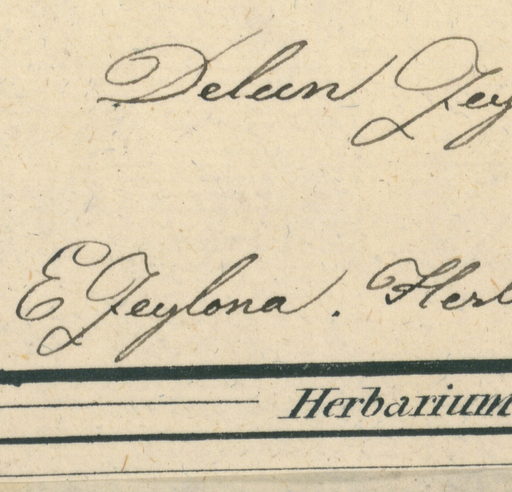 Deleun Zey
E Zeylona. Herb
Herbarium